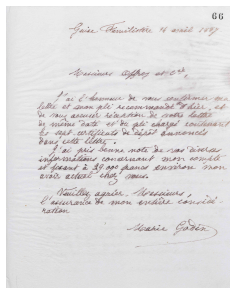 66
Guise Familistère 16 avril 1897
Messieurs Offroy et Cie,
J'ai l'honneur de vous confirmer ma
lettre et mon pli recommandé d'hier, et
de vous accuser réception de votre lettre
de même date et du pli chargé contenant
les sept certificats de dépôt annoncés
dans cette lettre.
J'ai pris bonne note de vos diverses
informations concernant mon compte
et fixant à 29.000 francs environ mon
avoir actuel chez vous.
Veuillez agréer, Messieurs,
l'assurance de mon entière considé-
ration
Marie Godin